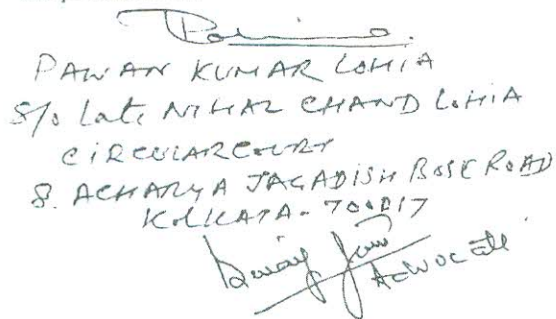 PAWAN KUMAR LOHIA
S/o Late NIHAL CHAND LOHIA
CIRCULAR COURT
8. ACHARYA JAGADISH BOSE ROAD
KOLKATA - 700017
ADVOCATE